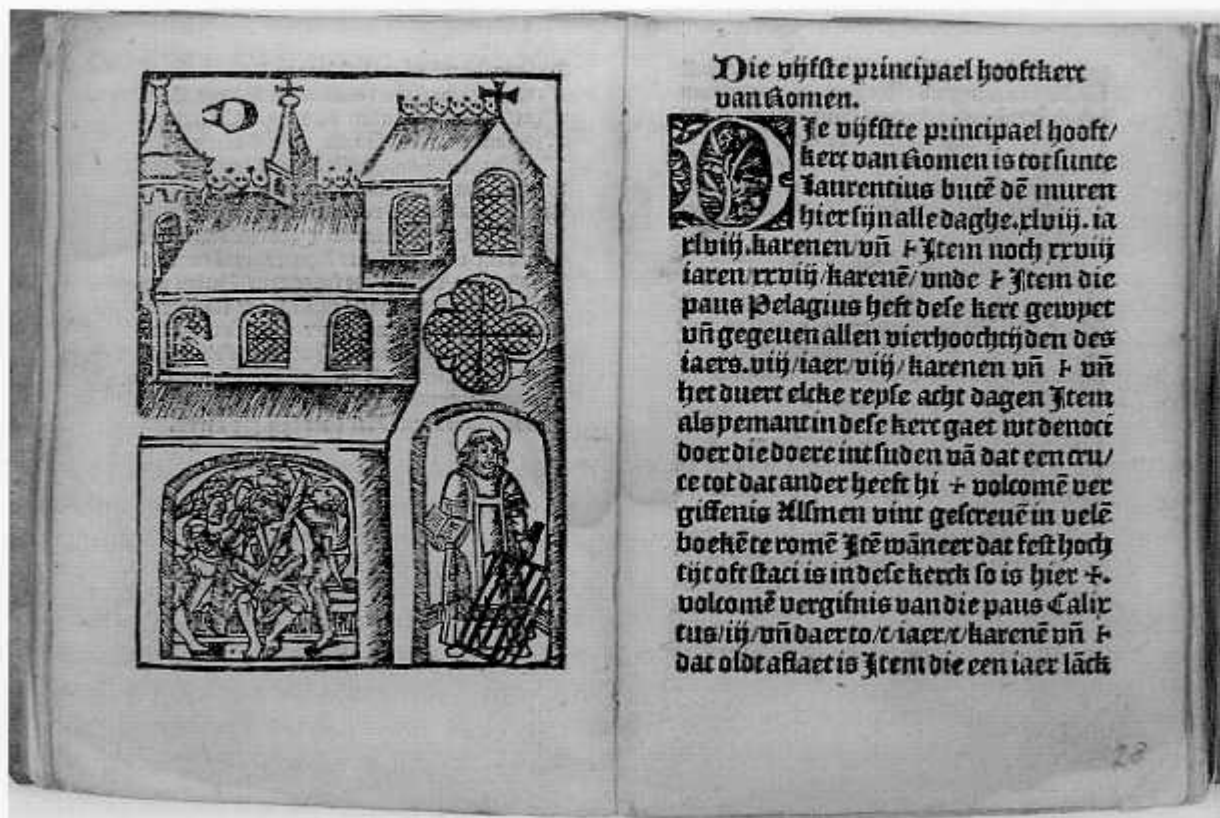 Die vijfste principael hooftkerc
van Romen.
DIe vijfste principael hooft/
kerc van Romen is tot sunte
Laurentius butē dē muren
hier sijn alle daghe.xlviij. ia
xlviij.karenen/vñ ⁊ Item noch xxviij
iaren/xxviij/karenē/vnde ⁊ Item die
paus Pelagius heft dese kerc gewyet
vñ gegeuen allen vierhoochtijden des
iaers.viij/iaer/viij/karenen vñ ⁊ vñ
het duert elcke reyse acht dagen Item
als yemant in dese kerc gaet wt denoci
doer die doere int suden vā dat een cru/
ce tot dat ander heeft hi + volcomē ver
giffenis Alsmen vint gescreuē in velē
boekē te romē Itē wāneer dat fest hoch
tijt oft staci is in dese kerck so is hier +.
volcomē vergifnis van die paus Calix
tus/iij/vñ daer to/c/iaer/c/karenē vñ ⁊
dat oldt aflaet is Item die een iaer lāck
28